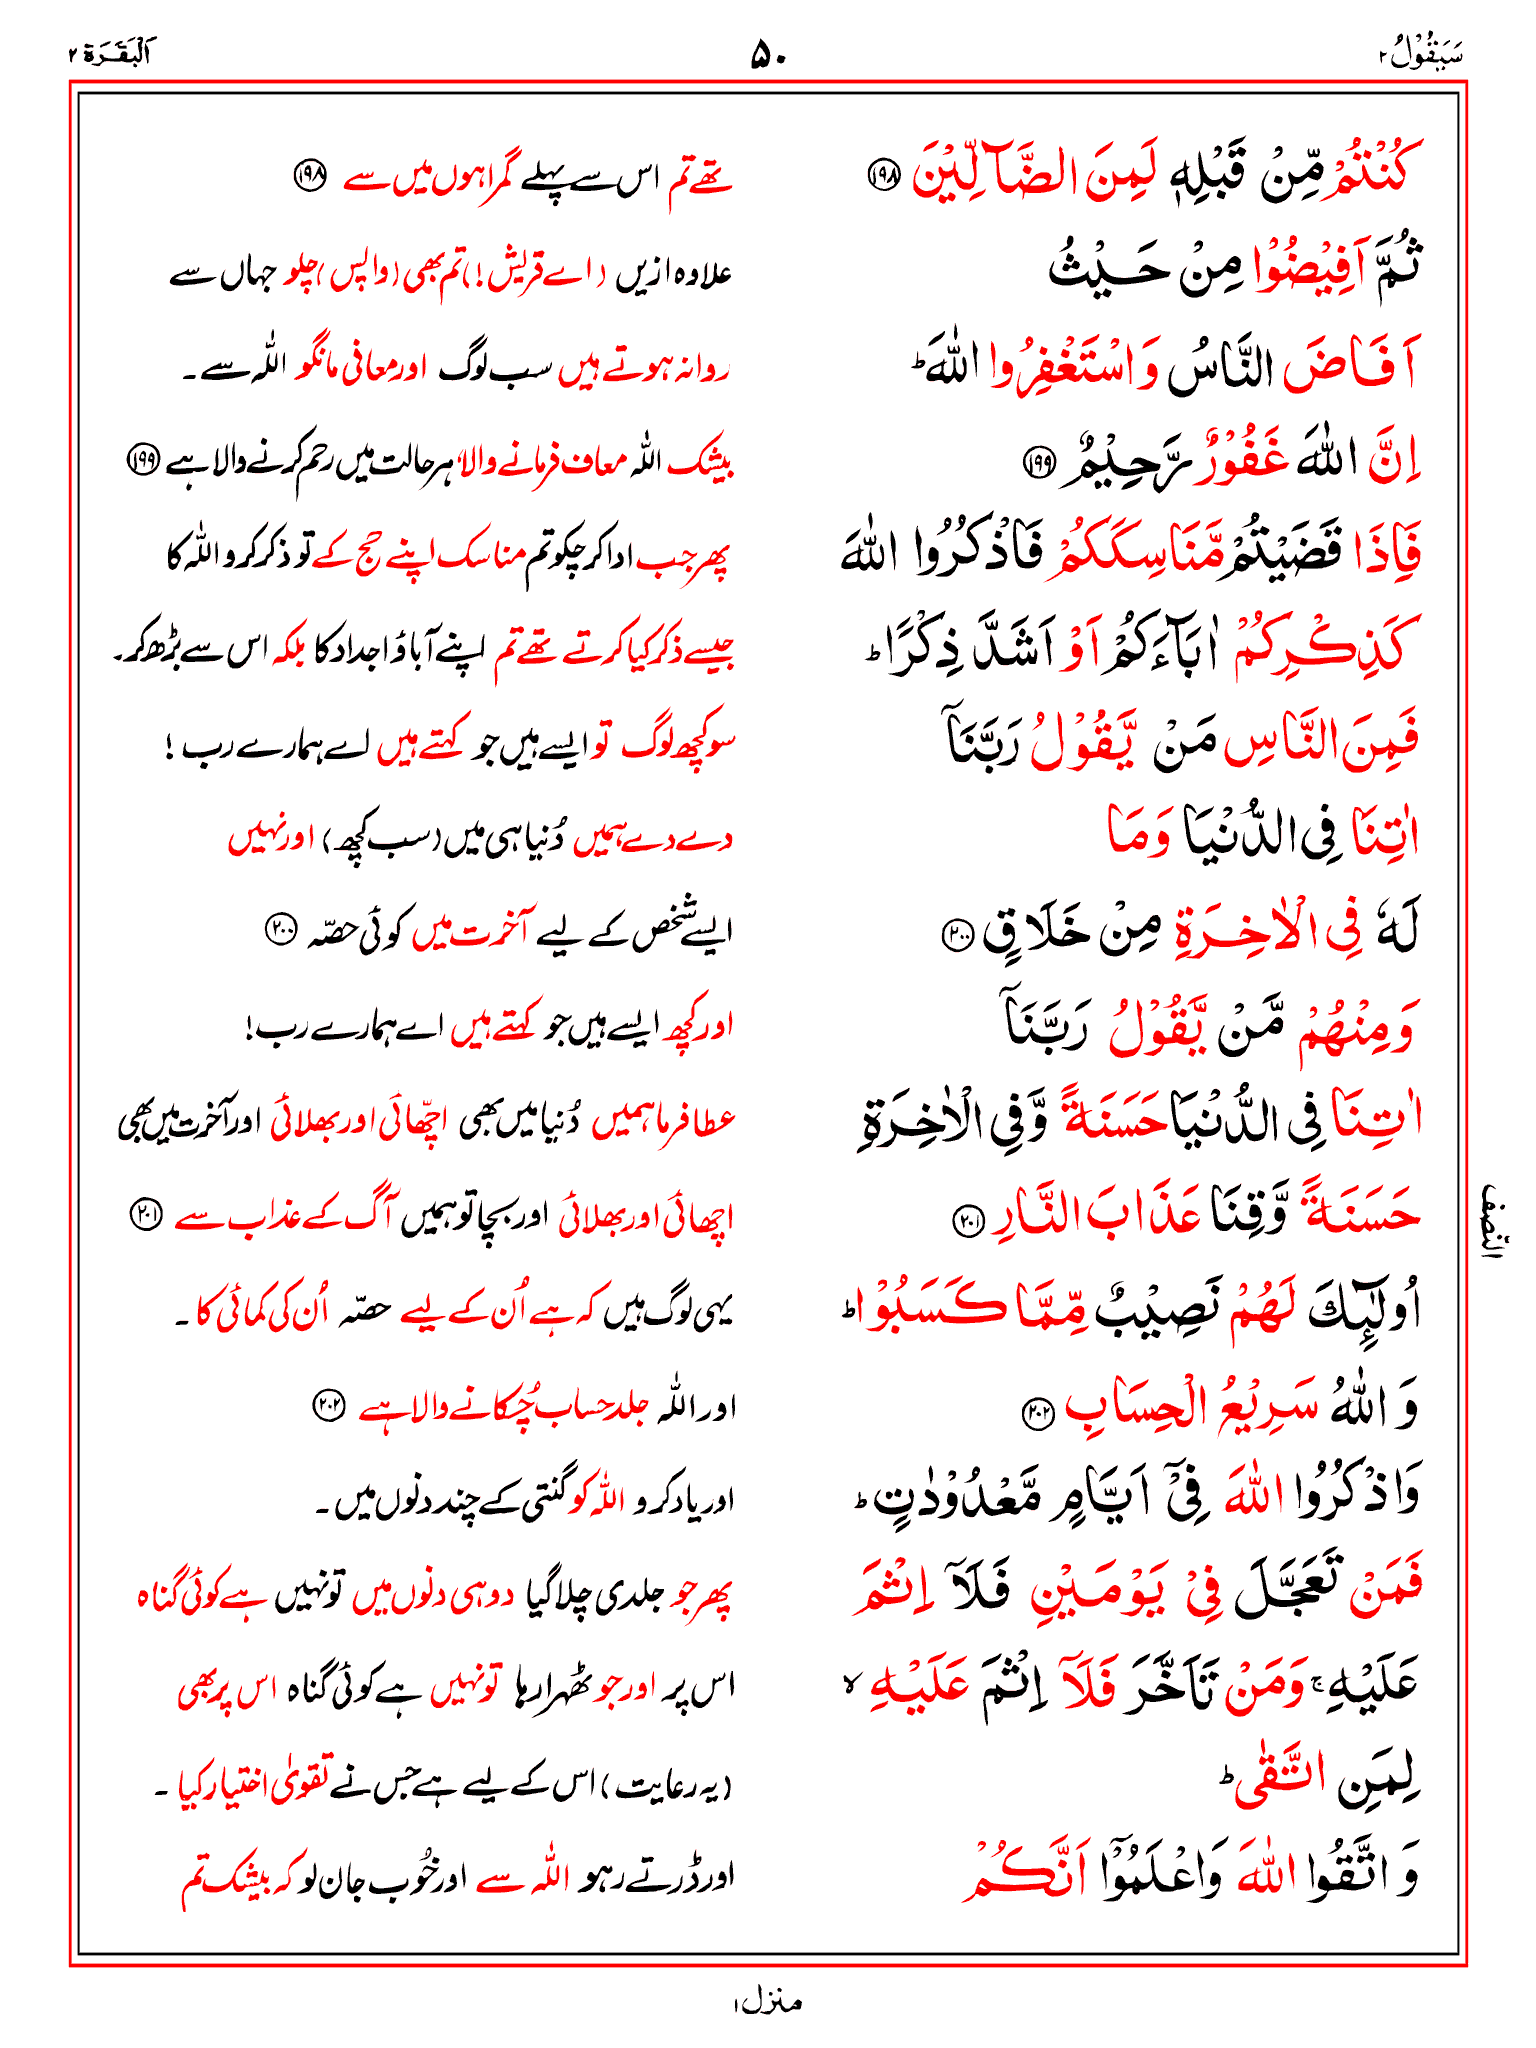 سَیَقُوْلُ ۲ ۵۰ اَلْبَقَرَة ۲
كُنْتُمْ مِّنْ قَبْلِهٖ لَمِنَ الضَّآلِّیْنَ ﴿۱۹۸﴾ تھے تم اس سے پہلے گمراہوں میں سے ﴿۱۹۸﴾
ثُمَّ اَفِیْضُوْا مِنْ حَیْثُ علاوہ ازیں (اے قریش!) تم بھی (واپس) چلو جہاں سے
اَفَاضَ النَّاسُ وَاسْتَغْفِرُوا اللّٰهَ ؕ روانہ ہوتے ہیں سب لوگ اور معافی مانگو اللہ سے۔
اِنَّ اللّٰهَ غَفُوْرٌ رَّحِیْمٌ ﴿۱۹۹﴾ بیشک اللہ معاف فرمانے والا، ہر حالت میں رحم کرنے والا ہے ﴿۱۹۹﴾
فَاِذَا قَضَیْتُمْ مَّنَاسِكَكُمْ فَاذْكُرُوا اللّٰهَ پھر جب ادا کر چکو تم مناسک اپنے حج کے تو ذکر کرو اللہ کا
كَذِكْرِكُمْ اٰبَآءَكُمْ اَوْ اَشَدَّ ذِكْرًا ؕ جیسے ذکر کیا کرتے تھے تم اپنے آباؤ اجداد کا بلکہ اس سے بڑھ کر۔
فَمِنَ النَّاسِ مَنْ یَّقُوْلُ رَبَّنَاۤ سو کچھ لوگ تو ایسے ہیں جو کہتے ہیں اے ہمارے رب!
اٰتِنَا فِی الدُّنْیَا وَمَا دے دے ہمیں دُنیا ہی میں (سب کچھ) اور نہیں
لَهٗ فِی الْاٰخِرَةِ مِنْ خَلَاقٍ ﴿۲۰۰﴾ ایسے شخص کے لیے آخرت میں کوئی حصّہ ﴿۲۰۰﴾
وَمِنْهُمْ مَّنْ یَّقُوْلُ رَبَّنَاۤ اور کچھ ایسے ہیں جو کہتے ہیں اے ہمارے رب!
اٰتِنَا فِی الدُّنْیَا حَسَنَةً وَّفِی الْاٰخِرَةِ عطا فرما ہمیں دُنیا میں بھی اچّھائی اور بھلائی اور آخرت میں بھی
حَسَنَةً وَّقِنَا عَذَابَ النَّارِ ﴿۲۰۱﴾ اچھائی اور بھلائی اور بچا تو ہمیں آگ کے عذاب سے ﴿۲۰۱﴾
النّصف
اُولٰٓىِٕكَ لَهُمْ نَصِیْبٌ مِّمَّا كَسَبُوْا ؕ یہی لوگ ہیں کہ ہے اُن کے لیے حصّہ اُن کی کمائی کا۔
وَاللّٰهُ سَرِیْعُ الْحِسَابِ ﴿۲۰۲﴾ اور اللہ جلد حساب چُکانے والا ہے ﴿۲۰۲﴾
وَاذْكُرُوا اللّٰهَ فِیْۤ اَیَّامٍ مَّعْدُوْدٰتٍ ؕ اور یاد کرو اللہ کو گنتی کے چند دنوں میں۔
فَمَنْ تَعَجَّلَ فِیْ یَوْمَیْنِ فَلَاۤ اِثْمَ پھر جو جلدی چلا گیا دو ہی دنوں میں تو نہیں ہے کوئی گناہ
عَلَیْهِ ۚ وَمَنْ تَاَخَّرَ فَلَاۤ اِثْمَ عَلَیْهِ ۙ اس پر اور جو ٹھہرا رہا تو نہیں ہے کوئی گناہ اس پر بھی
لِمَنِ اتَّقٰی ؕ (یہ رعایت) اس کے لیے ہے جس نے تقویٰ اختیار کیا۔
وَاتَّقُوا اللّٰهَ وَاعْلَمُوْۤا اَنَّكُمْ اور ڈرتے رہو اللہ سے اور خُوب جان لو کہ بیشک تم
منزل ۱